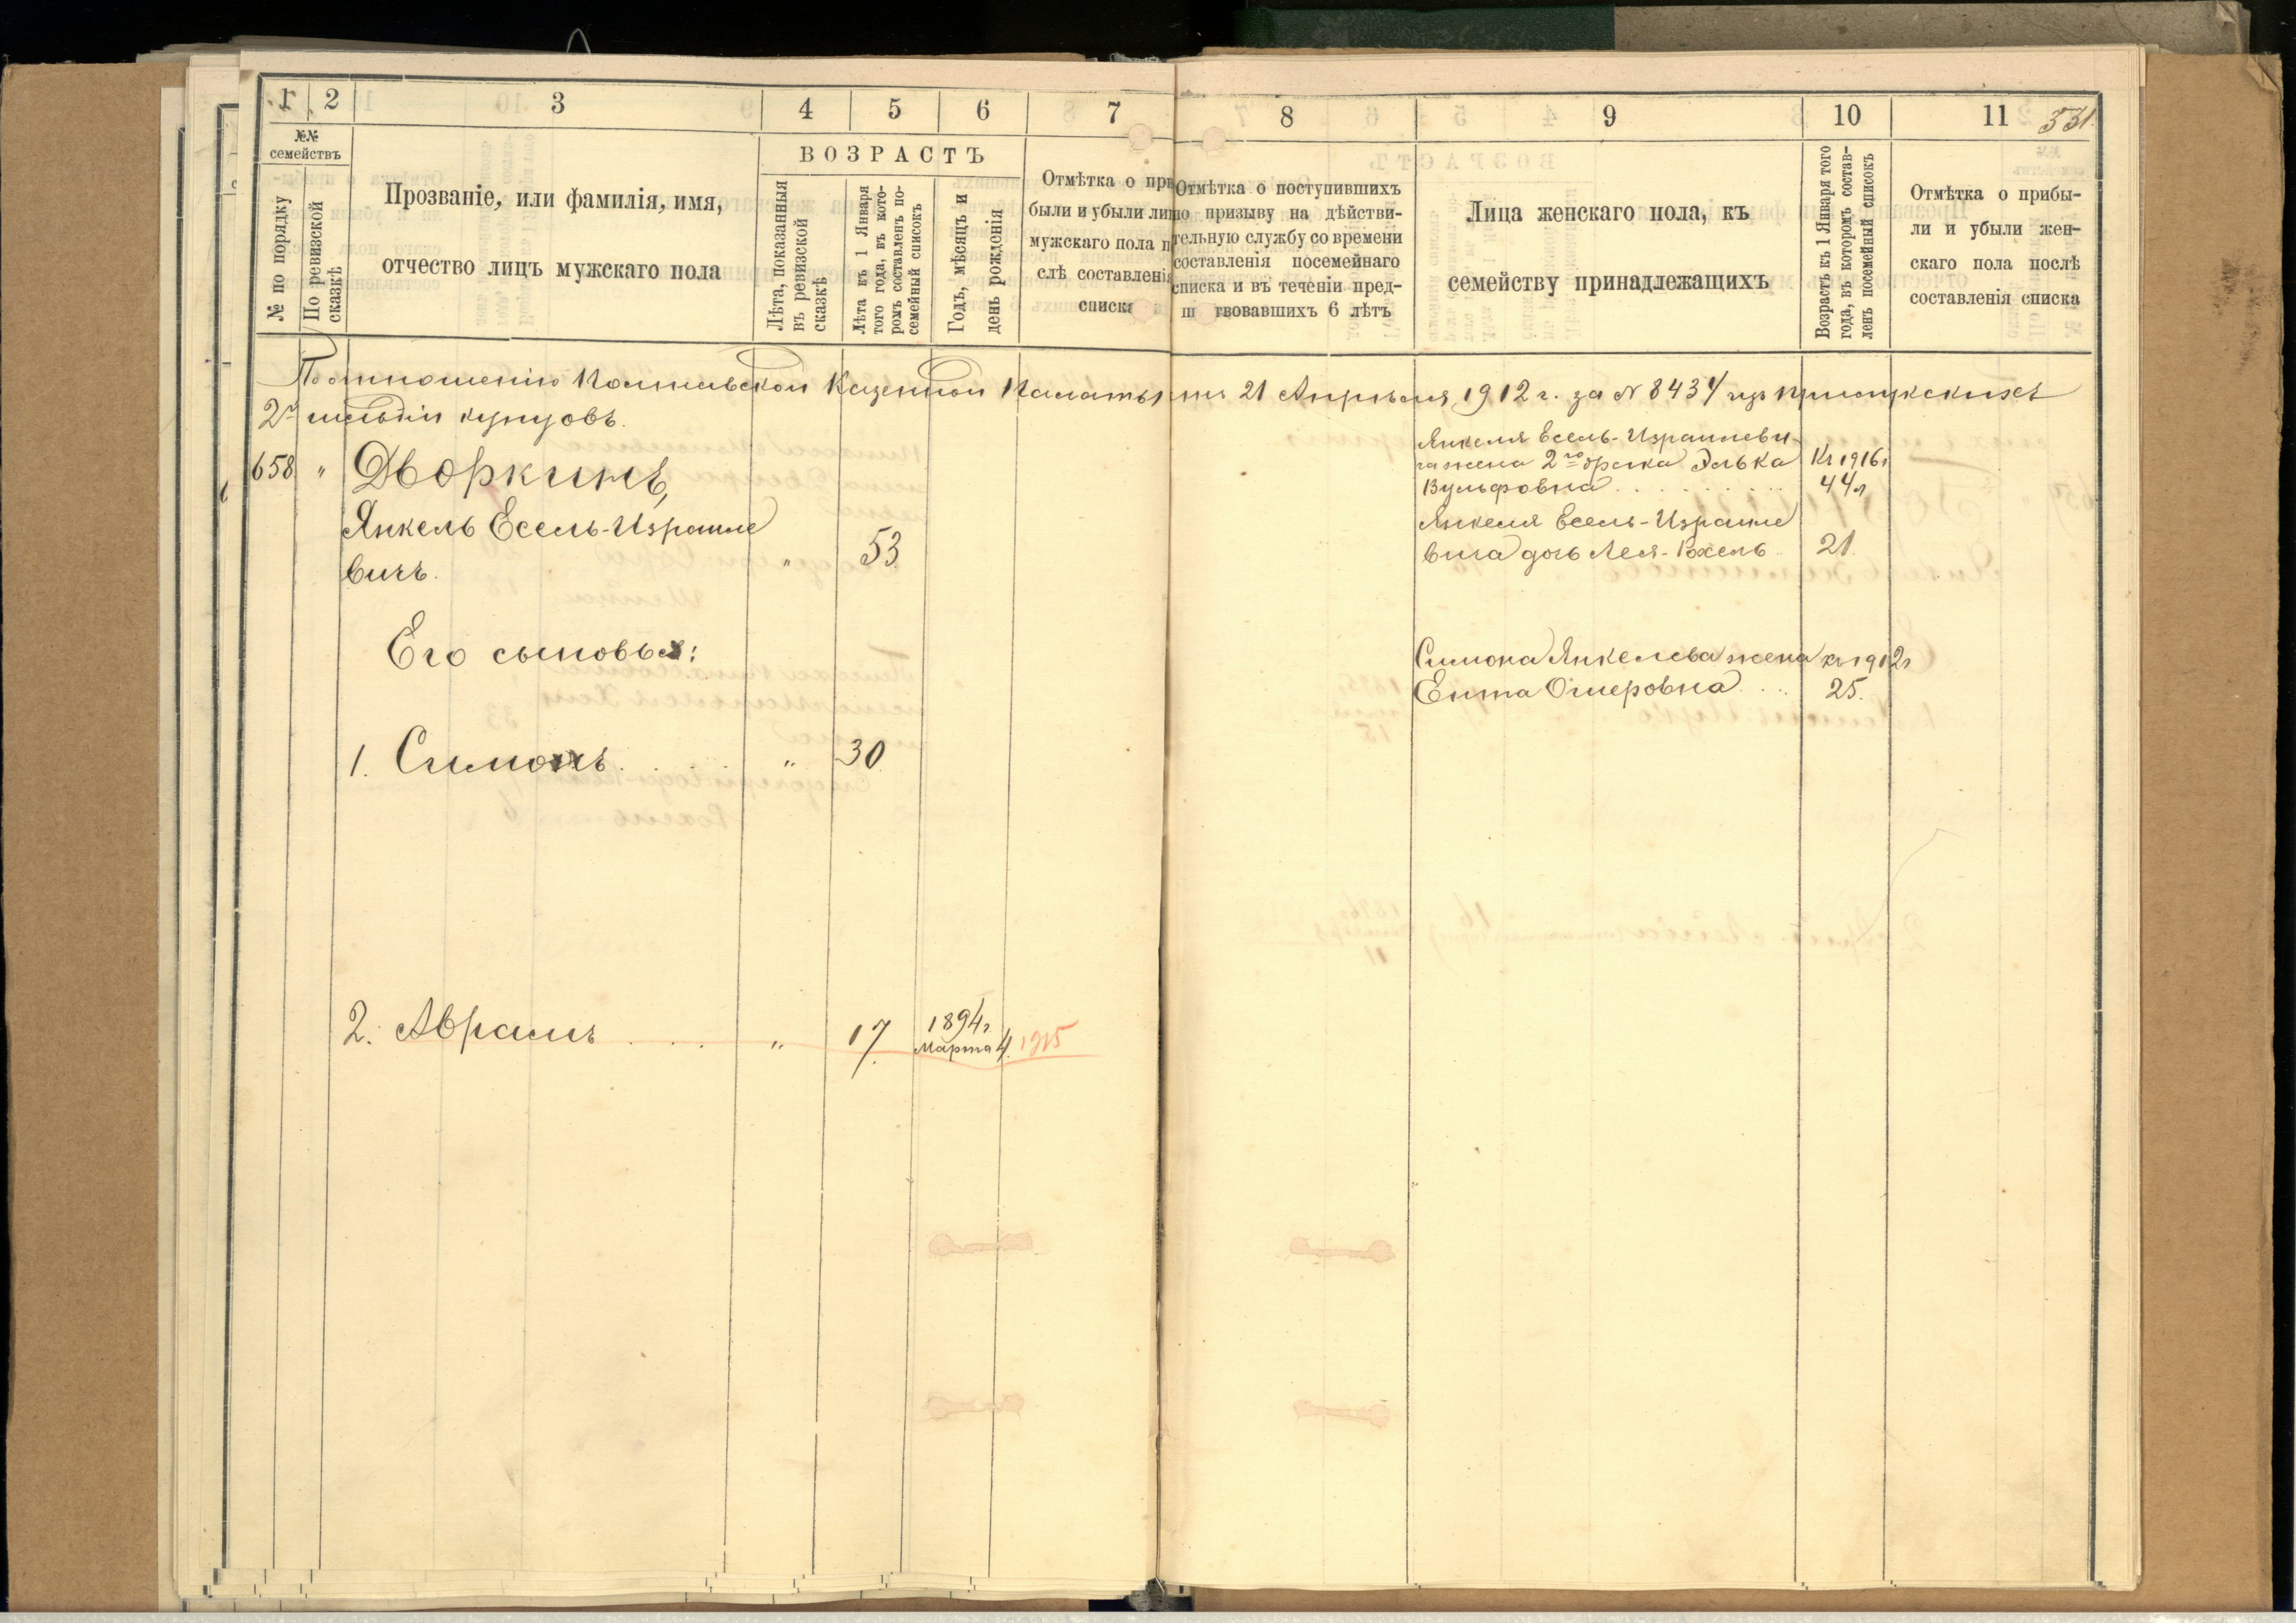 1 2 3 4 5 6 7
№№ семействъ
№ по порядку
По ревизской сказкѣ
Прозваніе, или фамилія, имя,
отчество лицъ мужскаго пола
ВОЗРАСТЪ
Лѣта, показанныя
въ ревизской
сказкѣ
Лѣта къ 1 Января
того года, въ кото-
ромъ составленъ по-
семейный списокъ
Годъ, мѣсяцъ и
день рожденія
Отмѣтка о при
были и убыли ли
мужскаго пола п
слѣ составленія
списка
8 9 10 11
331.
Отмѣтка о поступившихъ
по призыву на дѣйстви-
тельную службу со времени
составленія посемейнаго
списка и въ теченіи пред-
ш твовавшихъ 6 лѣтъ
Лица женскаго пола, къ
семейству принадлежащихъ
Возрастъ къ 1 Января того
года, въ которомъ состав-
ленъ посемейный списокъ
Отмѣтка о прибы-
ли и убыли жен-
скаго пола послѣ
составленія списка
По отношенію Полтавской Казенной Палаты отъ 21 Апрѣля 1912 г. за № 8434 изъ прилукскихъ
2й гильдіи купцовъ.
658 " Дворкинъ,
Янкель Есель-Израиле
вичъ. " 53
Его сыновья:
1. Симонъ . . . . " 30
2. Абрамъ . . . " 17. 1894г.
Марта 4. 1915
Янкеля Есель-Израилеви-
ча жена 2го брака Элька Къ 1916г
Вульфовна . . . . . . . 44л
Янкеля Есель-Израиле
вича дочь Лея-Рохель . . 21.
Симона Янкелева жена къ 1912г
Ента Ошеровна . . . 25.